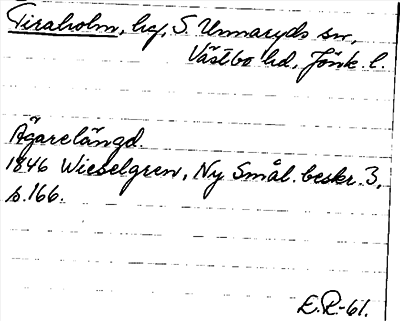 Tiraholm, hg, S. Unnaryds sn,
Västbo hd, Jönk. l.
Ägarelängd.
1846 Wieselgren, Ny Smål. beskr. 3,
s. 166.
E.R-61.